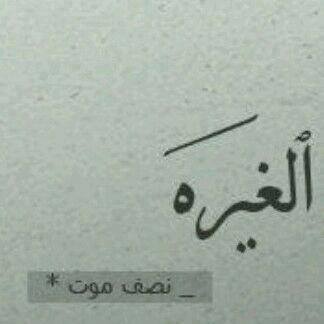 الغيرَه
_ نصف موت *